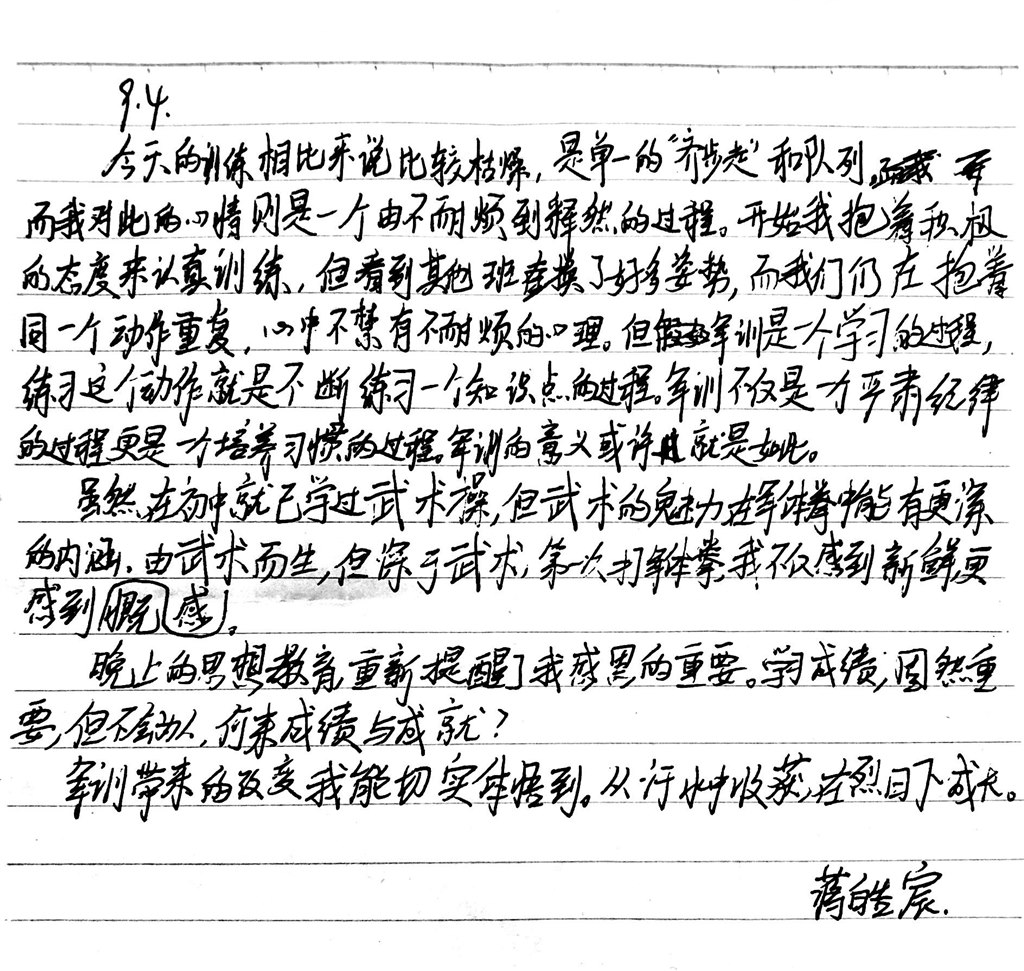 9.4.
今天的训练相比来说比较枯燥，是单一的“齐步走”和队列。
而我对此的心情则是一个由不耐烦到释然的过程。开始我抱着积极
的态度来认真训练，但看到其他班变换了好多姿势，而我们仍在抱着
同一个动作重复，心中不禁有不耐烦的心理。但军训是一个学习的过程，
练习这个动作就是不断练习一个知识点的过程。军训不仅是个严肃纪律
的过程更是一个培养习惯的过程。军训的意义或许就是如此。
虽然在初中就已学过武术操，但武术的魅力在军体拳中能有更深
的内涵。由武术而生，但深于武术，第一次打军体拳，我不仅感到新鲜，更
感到慨感。
晚上的思想教育重新提醒了我感恩的重要。学习成绩，固然重
要，但不会做人，何来成绩与成就？
军训带来的改变我能切实体悟到。从汗水中收获，在烈日下成长。
蒋皓宸.